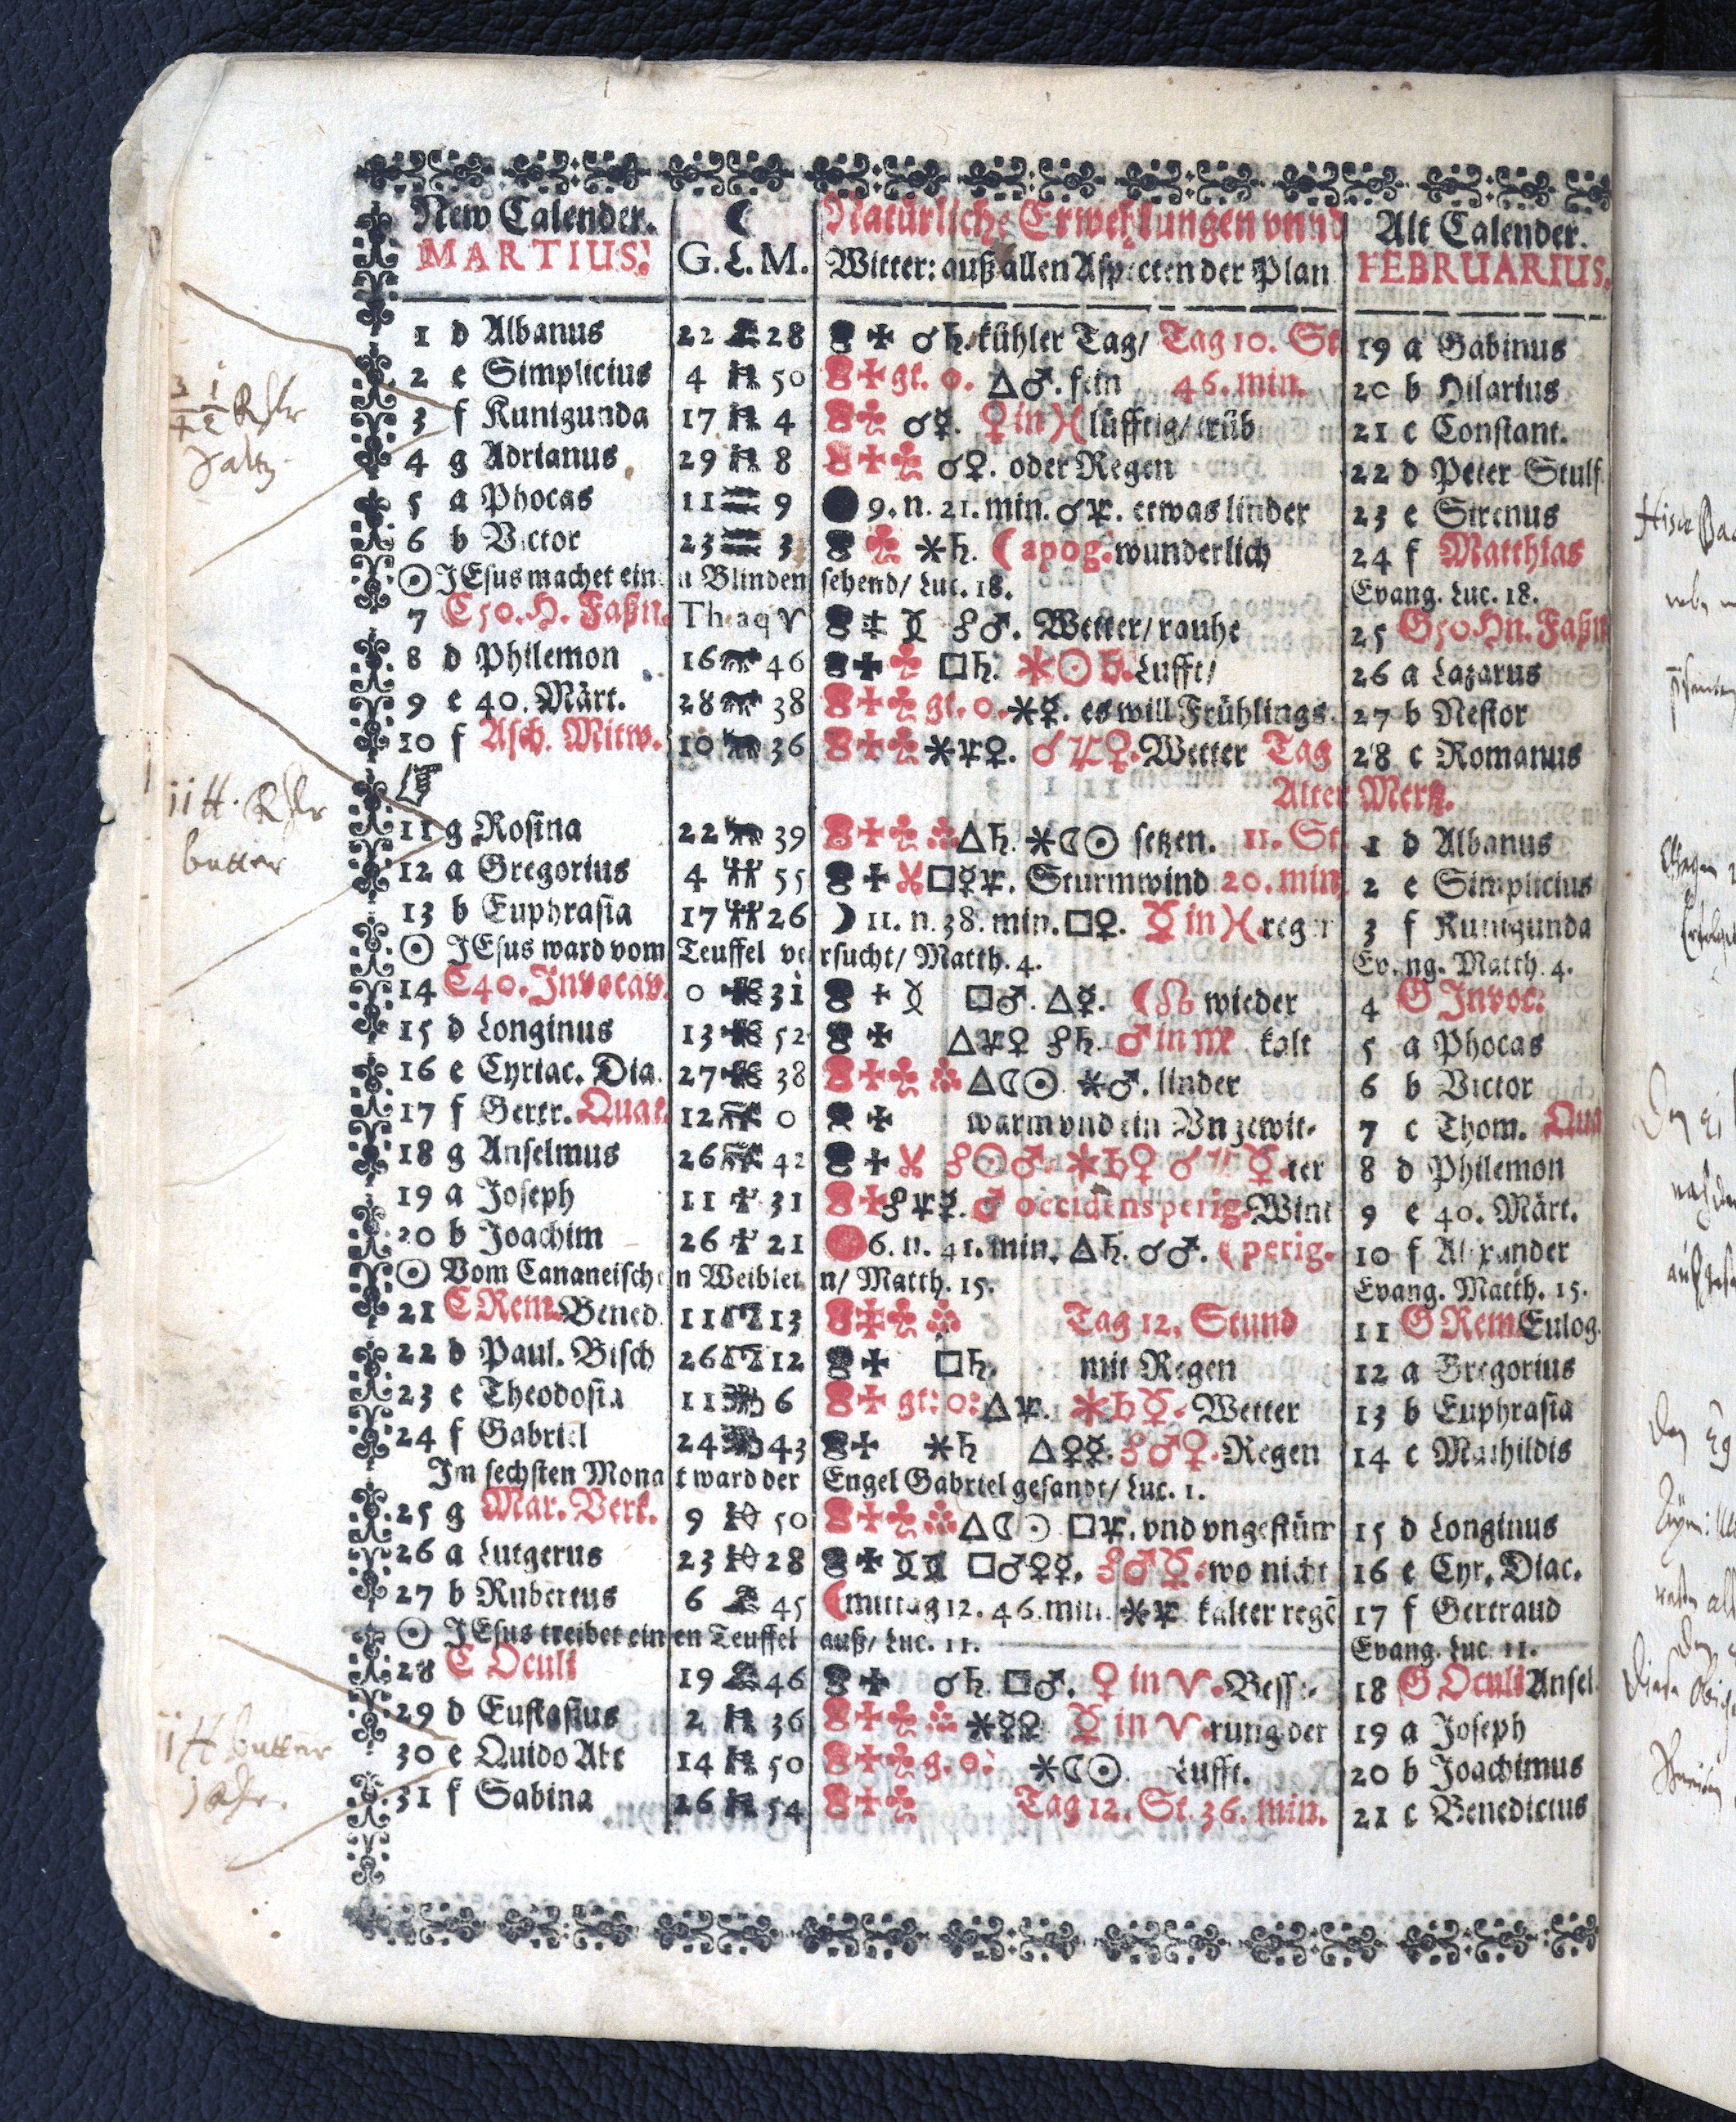 New Calender. ☾ Natürliche Erwehlungen vnnd Alt Calender.
MARTIUS. G. L. M. Witter: auß allen Aspecten der Plan FEBRUARIUS.
1 d Albanus 22 28 ☌ ♄. kühler Tag/ Tag 10. St. 19 a Gabinus
2 e Simplicius 4 50 gl. o. △♂. fein 46. min. 20 b Hilarius
3 f Kunigunda 17 4 ☌☿. ♀ in ♓ lüfftig/ trüb 21 c Constant.
4 g Adrianus 29 8 ☌♀. oder Regen 22 d Peter Stulf
5 a Phocas 11 9 ● 9. n. 21. min. ☌♃. etwas linder 23 e Sirenus
6 b Victor 23 3 ⚹♄. ☾ apog. wunderlich 24 f Matthias
☉ JEsus machet einen Blinden sehend/ Luc. 18. Evang. Luc. 18.
7 C 50. H. Faßn. Thaaq ♈ ☍♂. Wetter/ rauhe 25 G 50 Hn. Faßn
8 d Philemon 16 46 □♄. ⚹☉♄. Lufft/ 26 a Lazarus
9 e 40. Märt. 28 38 gl. o. ⚹☿. es will Frühlings 27 b Nestor
10 f Asch. Mitw. 10 36 ⚹♃♀. ☌♃♀. Wetter Tag 28 c Romanus
☞ Alter Mertz.
11 g Rosina 22 39 △♄. ⚹☾☉ setzen. 11. St. 1 d Albanus
12 a Gregorius 4 55 □☿♃. Sturmwind 20. min. 2 e Simplicius
13 b Euphrasia 17 26 ☽ 11. n. 38. min. □♀. ☿ in ♓. regen 3 f Kunigunda
☉ JEsus ward vom Teuffel versucht/ Matth. 4. Evang. Matth. 4.
14 C 40. Invocav. 0 31 □♂. △☿. ☾☊ wieder 4 G Invoc.
15 d Longinus 13 52 △♃♀ ☍♄. ♂ in ♍ kalt 5 a Phocas
16 e Cyriac. Dia. 27 38 △☾☉. ⚹♂. linder 6 b Victor
17 f Gertr. Quat. 12 0 warm vnd ein Vngewit- 7 c Thom. Qua
18 g Anselmus 26 42 ☍☉♂. ⚹♄♀ ☌♃☿. ter 8 d Philemon
19 a Joseph 11 31 ☍♃☿. ♂ occidens perig. Wint 9 e 40. Märt.
20 b Joachim 26 21 6. n. 41. min. △♄. ☌♂. ☾ perig. 10 f Alexander
☉ Vom Cananeischen Weiblein/ Matth. 15. Evang. Matth. 15.
21 C Rem. Bened. 11 13 Tag 12. Stund 11 G Rem. Eulog.
22 d Paul. Bisch 26 12 □♄. mit Regen 12 a Gregorius
23 e Theodosia 11 6 gl: o: △♃. ⚹♄☿. Wetter 13 b Euphrasia
24 f Gabriel 24 43 ⚹♄ △♀☿. ☍♂♀. Regen 14 c Mathildis
Im sechsten Monat ward der Engel Gabriel gesandt/ Luc. 1.
25 g Mar. Verk. 9 50 △☾☉ □♃. vnd vngestüm 15 d Longinus
26 a Lutgerus 23 28 □♂♀☿. ☍♂☿. wo nicht 16 e Cyr. Diac.
27 b Rubertus 6 45 ☾ mittag 12. 46. min. ⚹♃ kalter regē 17 f Gertraud
☉ JEsus treibet einen Teuffel auß/ Luc. 11. Evang. Luc. 11.
28 C Oculi 19 46 ☌♄. □♂. ♀ in ♈. Besse- 18 G Oculi Ansel.
29 d Eustasius 2 36 ⚹☿♀ ☿ in ♈. rung der 19 a Joseph
30 e Quido Abt 14 50 g. o: ⚹☾☉. Lufft. 20 b Joachimus
31 f Sabina 26 54 Tag 12. St. 36. min. 21 c Benedictus
butter
butter